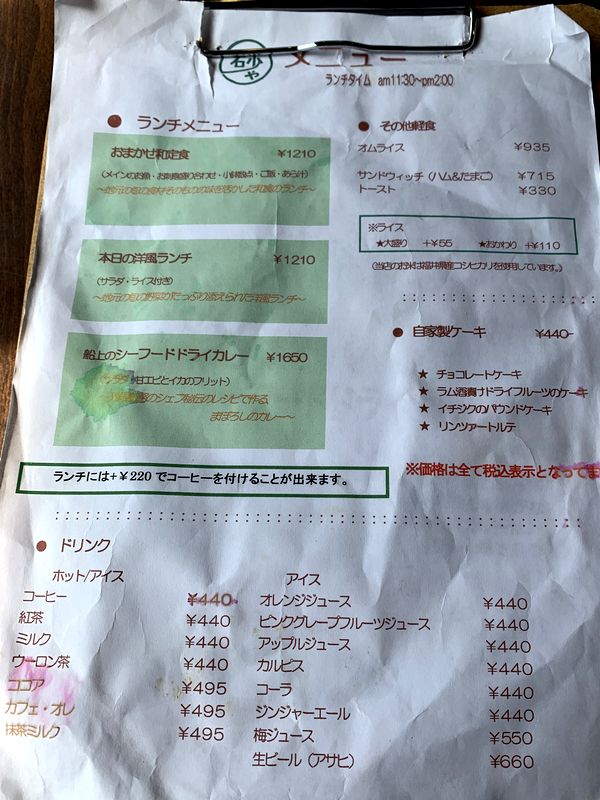 メニュー
ランチタイム am11:30~pm2:00
● ランチメニュー
おまかせ和定食 ¥1210
(メインのお魚・お刺身盛り合わせ・小鉢数点・ご飯・あら汁)
本日の洋風ランチ ¥1210
(サラダ・ライス付き)
~地元の旬の野菜がたっぷり添えられた洋風ランチ~
船上のシーフードドライカレー ¥1650
(サラダ 甘エビとイカのフリット)
のシェフ秘伝のレシピで作る、
まぼろしのカレー~
ランチには+¥220でコーヒーを付けることが出来ます。
● その他軽食
オムライス ¥935
サンドウィッチ(ハム&たまご) ¥715
トースト ¥330
※ライス
★大盛り +¥55 ★おかわり +¥110
(当店のお米は福井県産コシヒカリを使用しています。)
● 自家製ケーキ ¥440-
★ チョコレートケーキ
★ ラム酒漬けドライフルーツのケーキ
★ イチジクのパウンドケーキ
★ リンツァートルテ
※価格は全て税込表示となってま
● ドリンク
ホット/アイス
コーヒー ¥440
紅茶 ¥440
ミルク ¥440
ウーロン茶 ¥440
ココア ¥495
カフェ・オレ ¥495
抹茶ミルク ¥495
アイス
オレンジジュース ¥440
ピンクグレープフルーツジュース ¥440
アップルジュース ¥440
カルピス ¥440
コーラ ¥440
ジンジャーエール ¥440
梅ジュース ¥550
生ビール(アサヒ) ¥660